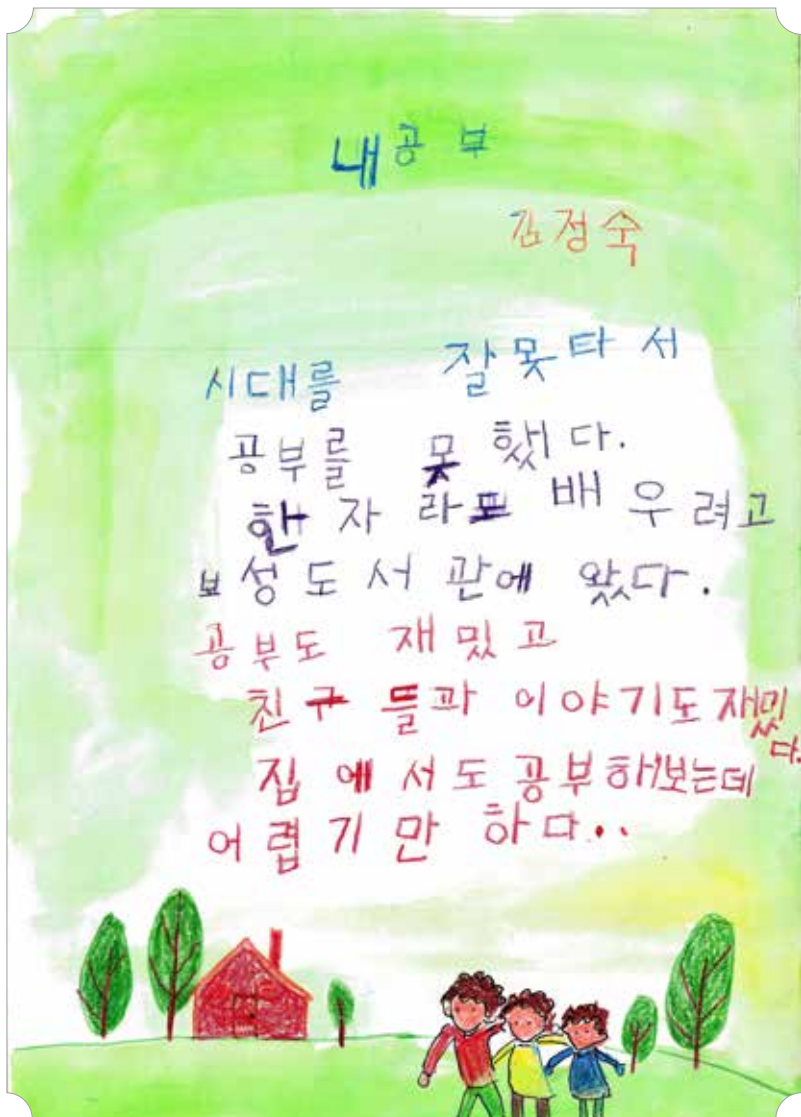 내공부
김정숙
시대를 잘못타서
공부를 못했다.
한자라도 배우려고
보성도서관에 왔다.
공부도 재밌고
친구들과 이야기도 재밌다.
집에서도 공부해보는데
어렵기만 하다..